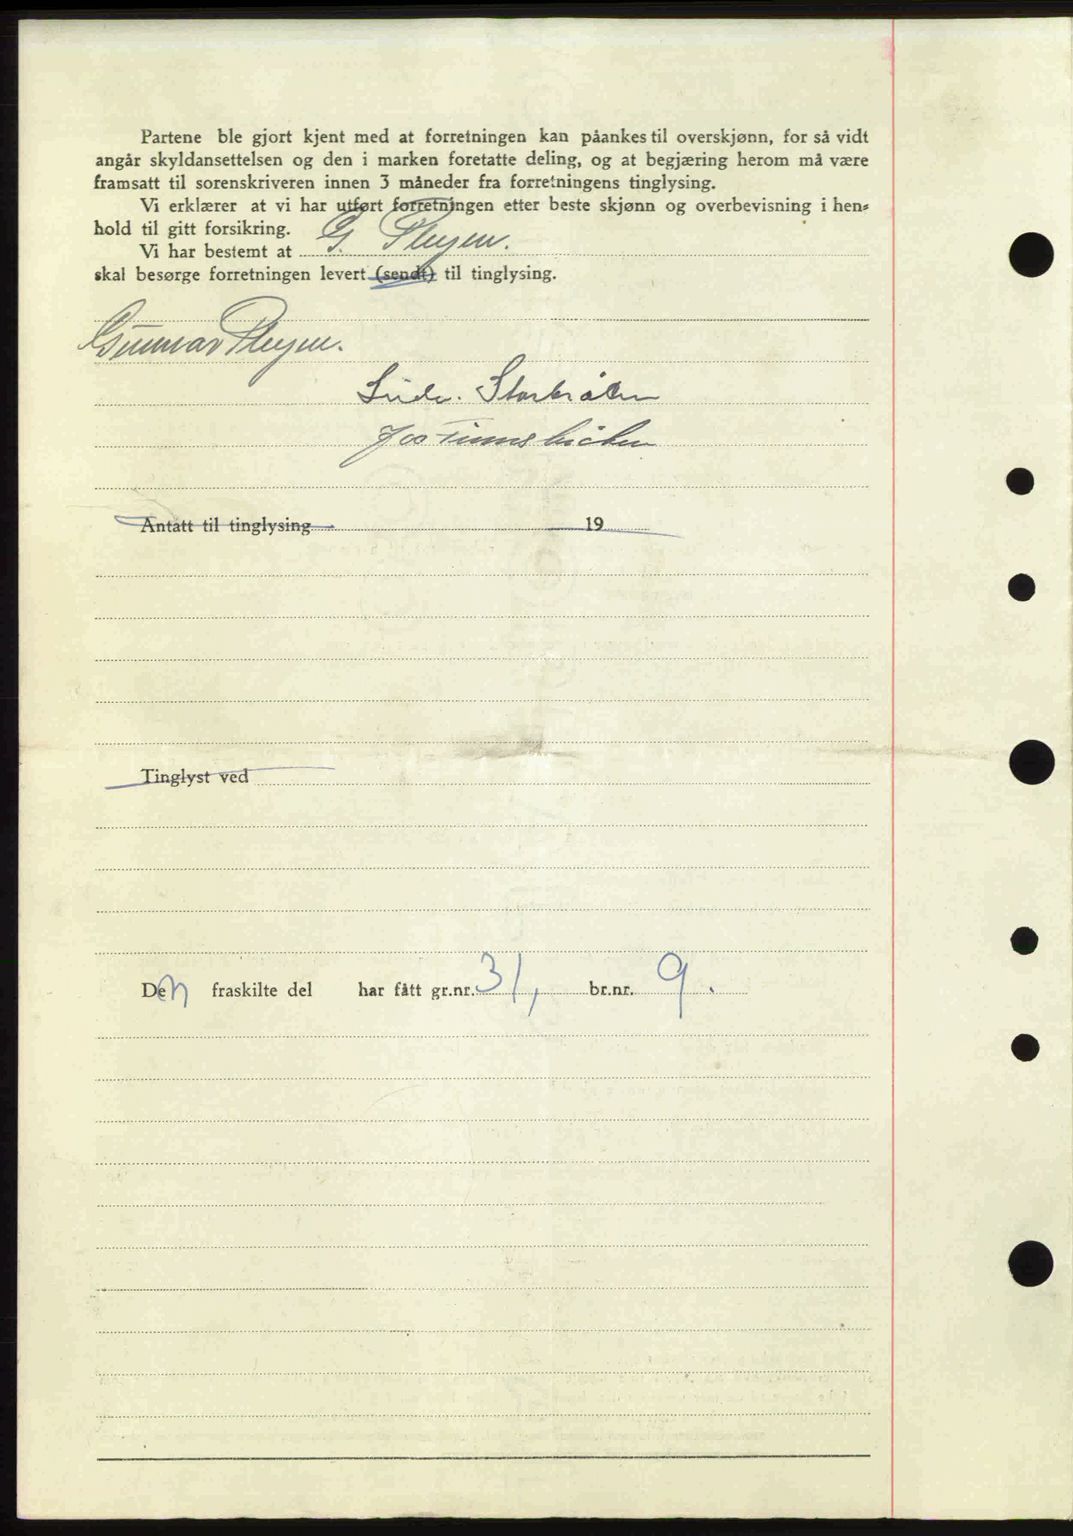 Partene ble gjort kjent med at forretningen kan påankes til overskjønn, for så vidt
angår skyldansettelsen og den i marken foretatte deling, og at begjæring herom må være
framsatt til sorenskriveren innen 3 måneder fra forretningens tinglysing.
Vi erklærer at vi har utført forretningen etter beste skjønn og overbevisning i hen-
hold til gitt forsikring.
Vi har bestemt at G. Pleyen.
skal besørge forretningen levert (sendt) til tinglysing.
Gunnar Pleyen.
Storbråten
Finnsbråten
Antatt til tinglysing 19
Tinglyst ved
Den fraskilte del har fått gr.nr. 31, br.nr. 9.